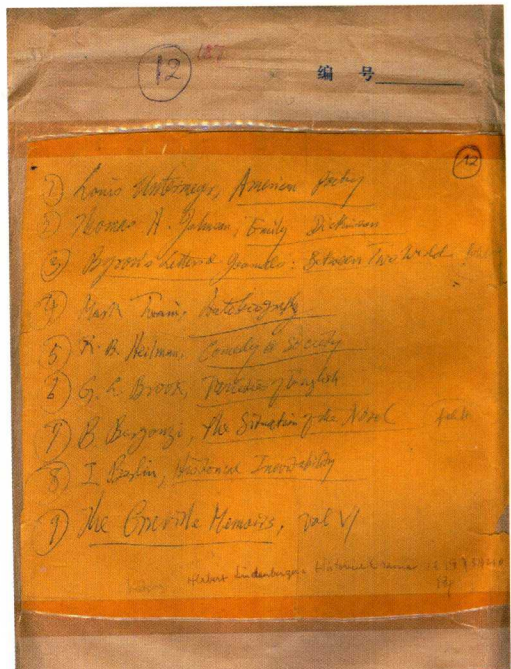 12 187
编 号
12
① Louis Untermeyer, American Poetry
② Thomas H. Johnson, Emily Dickinson
③ Byron's Letters & Journals: Between Two Worlds
④ Mark Twain, Autobiography
⑤ R. B. Heilman, Comedy & Society
⑥ G. L. Brook, Varieties of English
⑦ B. Bergonzi, The Situation of the Novel
⑧ I. Berlin, Historical Inevitability
⑨ The Greville Memoirs, Vol VI
Herbert Lindenberger Historical Drama